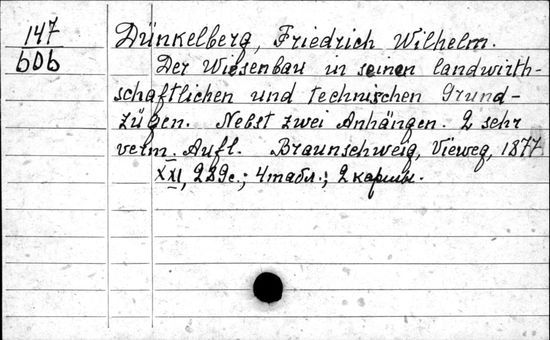 147
606
Dünkelberg, Friedrich Wilhelm.
Der Wiesenbau in seinen landwirth-
schaftlichen und technischen Grund-
zügen. Nebst zwei Anhängen. 2 sehr
verm. Aufl. Braunschweig, Vieweg, 1877
XXI, 289с.; 4табл.; 2карты.